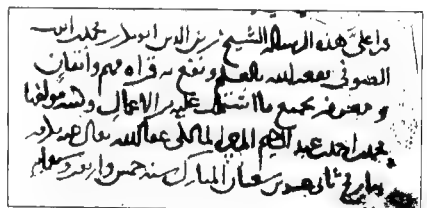 قرأ على هذه الرسالة الشيخ زين الدين ابو بكر بن محمد بن
الصوفي نفعه الله بالعلم ونفع به قراءة فهم واتقان
ومعرفة بجميع ما اشتملت عليه من الاعمال وكتبه مولفها
محمد بن احمد بن عبد الرحيم المزي المالكي عفا الله
بتاريخ ثاني شعبان المبارك سنة خمس واربعين وسبعمائة